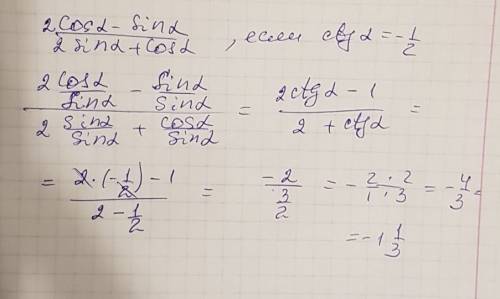 (2cosα - sinα)/(2sinα + cosα) , если ctgα = -1/2
(2 cosα/sinα - sinα/sinα)/(2 sinα/sinα + cosα/sinα) = (2ctgα - 1)/(2 + ctgα) =
= (2·(-1/2) - 1)/(2 - 1/2) = -2/(3/2) = -(2·2)/(1·3) = -4/3 =
= -1 1/3